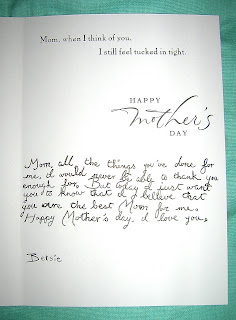 Mom, when I think of you,
I still feel tucked in tight.
HAPPY
mother's
DAY
Mom, all the things you've done for
me, I would never be able to thank you
enough for. But today I just want
you to know that I believe that
you are the best Mom for me.
Happy Mother's day. I love you.
Betsie